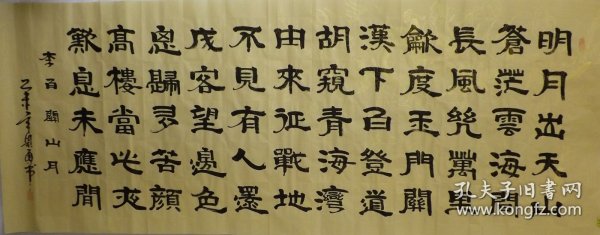 明月出天山
蒼茫雲海間
長風幾萬里
龡度玉門關
漢下白登道
胡窺青海灣
由來征戰地
不見有人還
戍客望邊色
思歸多苦顏
高樓當此夜
歎息未應間
李白關山月
孔夫子旧书网
www.kongfz.com